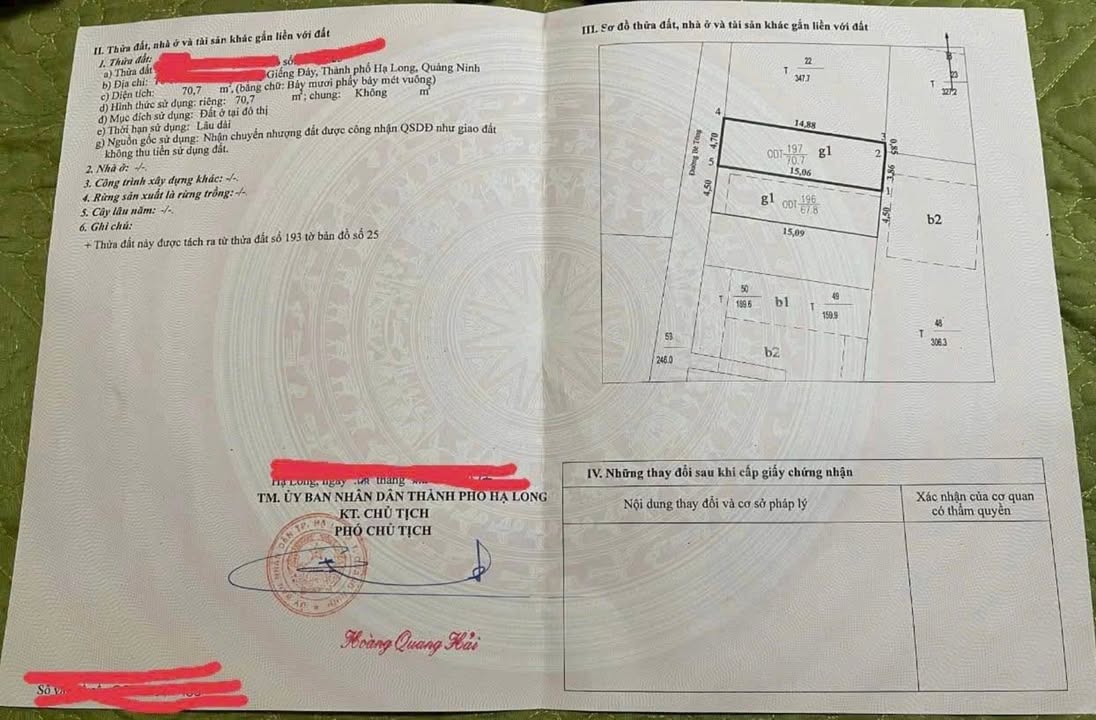 II. Thửa đất, nhà ở và tài sản khác gắn liền với đất
1. Thửa đất:
a) Thửa đất số
b) Địa chỉ: Giếng Đáy, Thành phố Hạ Long, Quảng Ninh
c) Diện tích: 70,7 m², (bằng chữ: Bảy mươi phẩy bảy mét vuông)
d) Hình thức sử dụng: riêng: 70,7 m²; chung: Không m²
đ) Mục đích sử dụng: Đất ở tại đô thị
e) Thời hạn sử dụng: Lâu dài
g) Nguồn gốc sử dụng: Nhận chuyển nhượng đất được công nhận QSDĐ như giao đất
không thu tiền sử dụng đất.
2. Nhà ở: -/-.
3. Công trình xây dựng khác: -/-.
4. Rừng sản xuất là rừng trồng: -/-.
5. Cây lâu năm: -/-.
6. Ghi chú:
+ Thửa đất này được tách ra từ thửa đất số 193 tờ bản đồ số 25
Hạ Long, ngày tháng
TM. ỦY BAN NHÂN DÂN THÀNH PHỐ HẠ LONG
KT. CHỦ TỊCH
PHÓ CHỦ TỊCH
Hoàng Quang Hải
III. Sơ đồ thửa đất, nhà ở và tài sản khác gắn liền với đất
B
T 22
347.1
T 23
327.2
4
14,88
3
Đường Bê Tông
4,70
ODT 197
70.7
g1
2
0,85
5
15,06
3,86
1
4,50
g1
ODT 196
67.8
4,50
b2
15,09
T 50
189.6
b1
T 49
159.9
53
246.0
b2
T 48
306.3
IV. Những thay đổi sau khi cấp giấy chứng nhận
Nội dung thay đổi và cơ sở pháp lý
Xác nhận của cơ quan
có thẩm quyền